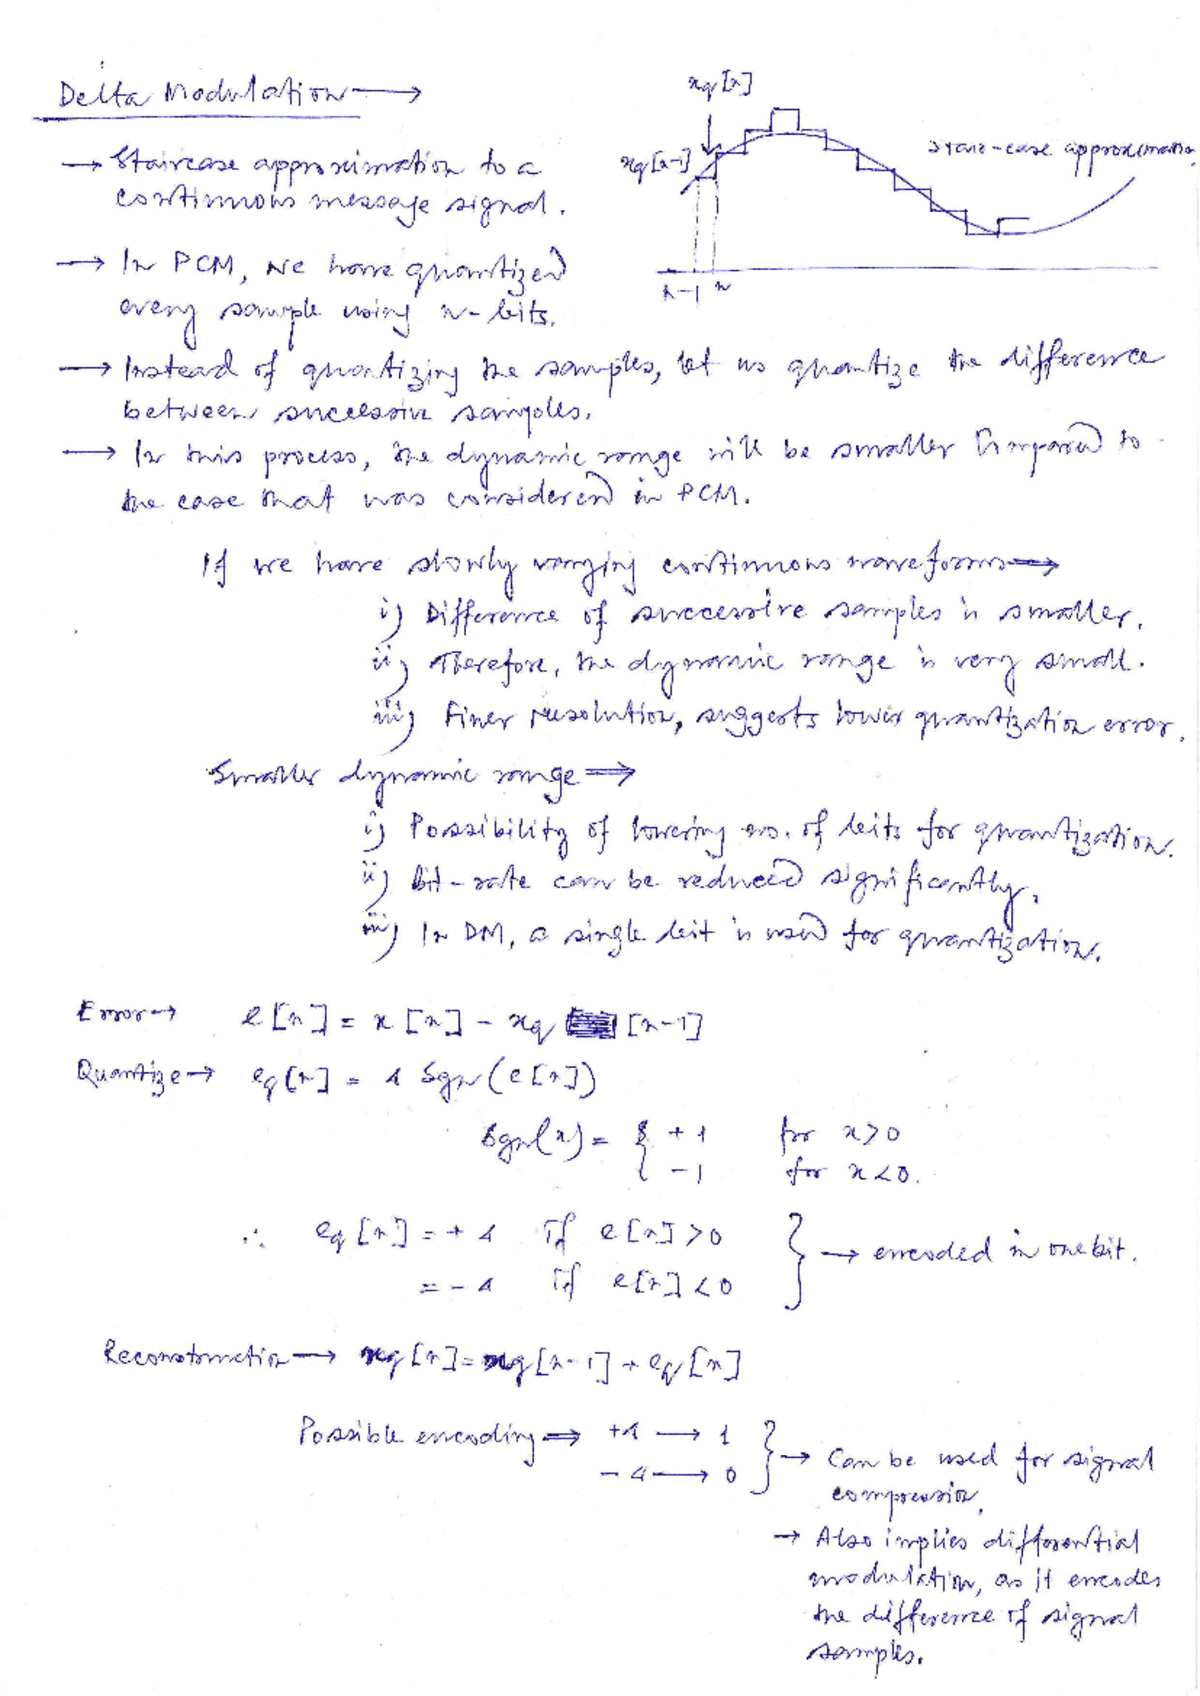 Delta Modulation →
xq[n]
xq[n-1]
stair-case approximation
n-1 n
→ Staircase approximation to a
continuous message signal.
→ In PCM, we have quantized
every sample using n-bits.
→ Instead of quantizing the samples, let us quantize the difference
between successive samples.
→ In this process, the dynamic range will be smaller compared to
the case that was considered in PCM.
If we have slowly varying continuous waveforms ⟹
i) Difference of successive samples is smaller.
ii) Therefore, the dynamic range is very small.
iii) Finer resolution, suggests lower quantization error.
Smaller dynamic range ⟹
i) Possibility of lowering no. of bits for quantization.
ii) Bit-rate can be reduced significantly.
iii) In DM, a single bit is used for quantization.
Error → e[n] = x[n] - xq [n-1]
Quantize → eq[n] = Δ Sgn(e[n])
Sgn(x) = { +1 for x>0
-1 for x<0.
∴ eq[n] = + Δ if e[n] > 0
= - Δ if e[n] < 0
} → encoded in one bit.
Reconstruction → xq[n] = xq[n-1] + eq[n]
Possible encoding ⟹ +Δ → 1
-Δ → 0
} → Can be used for signal
compression.
→ Also implies differential
modulation, as it encodes
the difference of signal
samples.